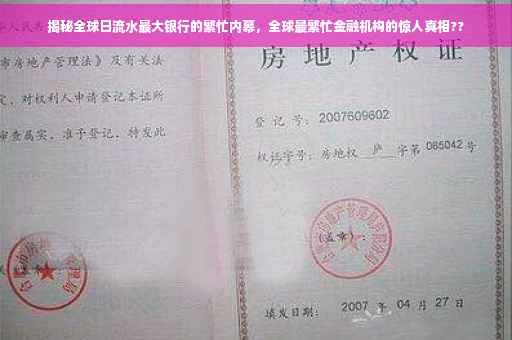 揭秘全球日流水最大银行的繁忙内幕，全球最繁忙金融机构的惊人真相??
人民共
市房地产管理法》及有关法
定，对权利人申请登记本证所
审查属实，准予登记，特发此
房地产权
登记号：2007609602
权证字号：房地权 庐 字第 085042 号
(盖章)：
填发日期：2007 年 04 月 27 日